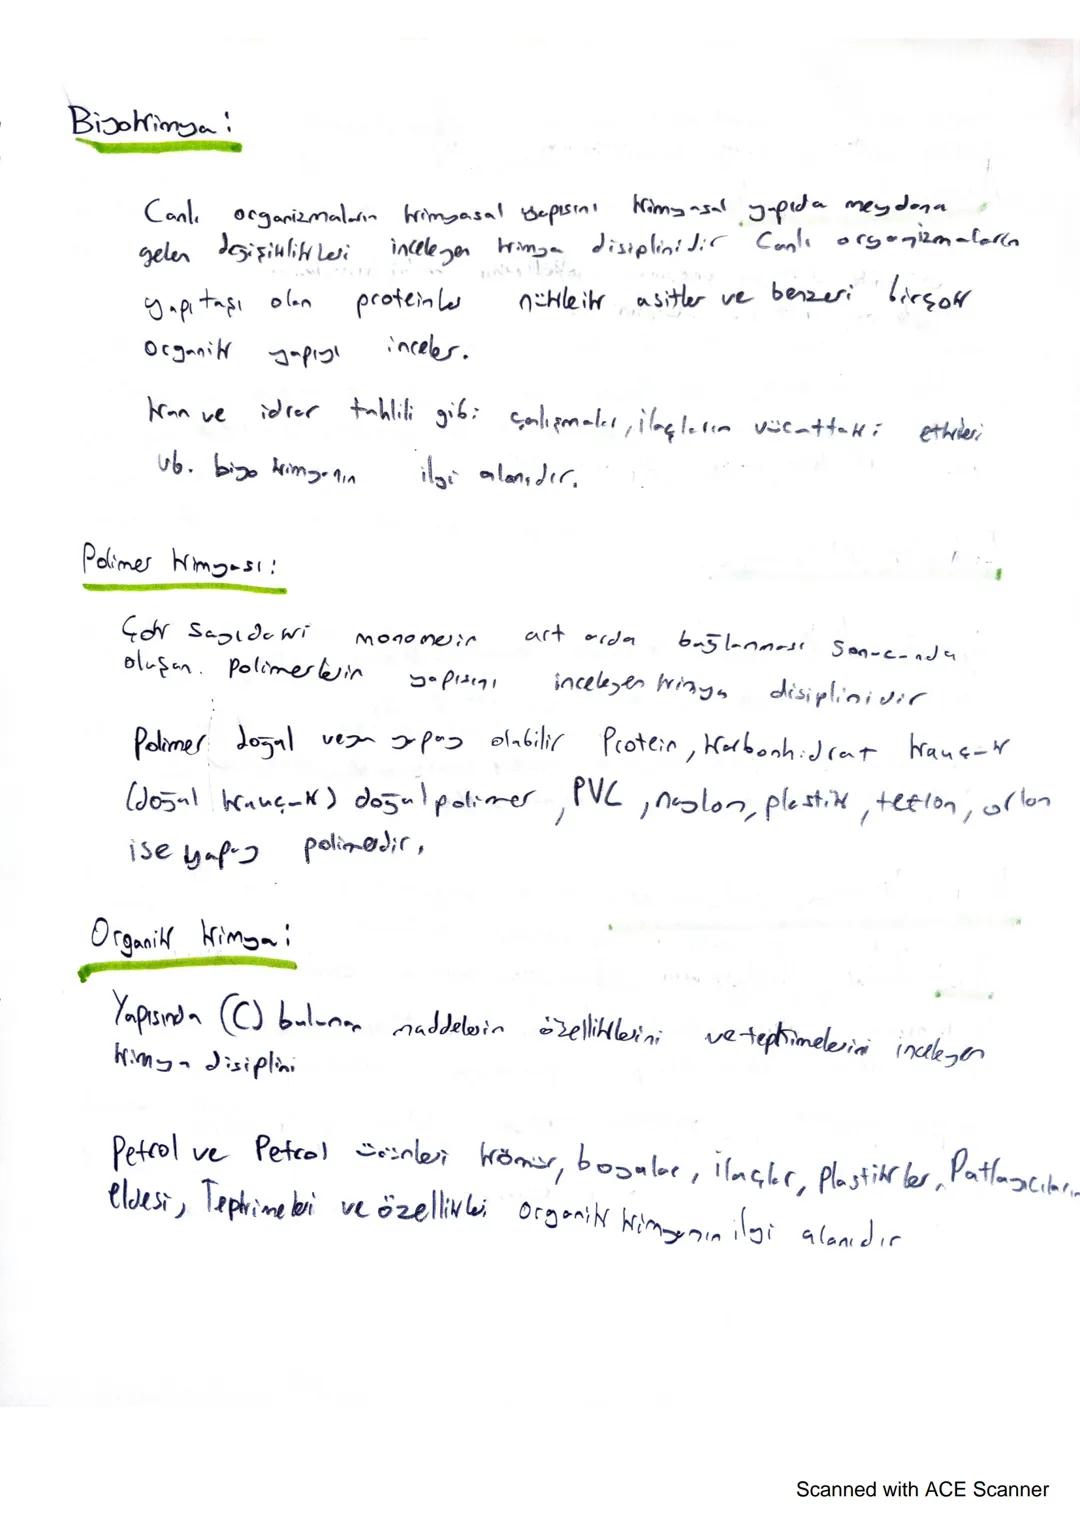 Biyokimya:
Canlı organizmaların kimyasal yapısını kimyasal yapıda meydana
gelen değişiklikleri inceleyen kimya disiplinidir Canlı organizmaların
yapı taşı olan proteinler nükleik asitler ve benzeri birçok
organik yapıyı inceler.
Kan ve idrar tahlili gibi çalışmalar, ilaçların vücuttaki etkileri
vb. biyo kimyanın ilgi alanıdır.
Polimer kimyası:
Çok sayıdaki monomerin art arda bağlanması sonucunda
oluşan. Polimerlerin yapısını inceleyen kimya disiplinidir
Polimer doğal veya yapay olabilir Protein, Karbonhidrat kauçuk
(doğal kauçuk) doğal polimer, PVC, naylon, plastik, teflon, orlon
ise yapay polimerdir.
Organik kimya:
Yapısında (C) bulunan maddelerin özelliklerini ve tepkimelerini inceleyen
kimya disiplini
Petrol ve Petrol ürünleri kömür, boyalar, ilaçlar, Plastikler, Patlayıcıların
eldesi, Tepkimeleri ve özellikleri organik kimyanın ilgi alanıdır
Scanned with ACE Scanner